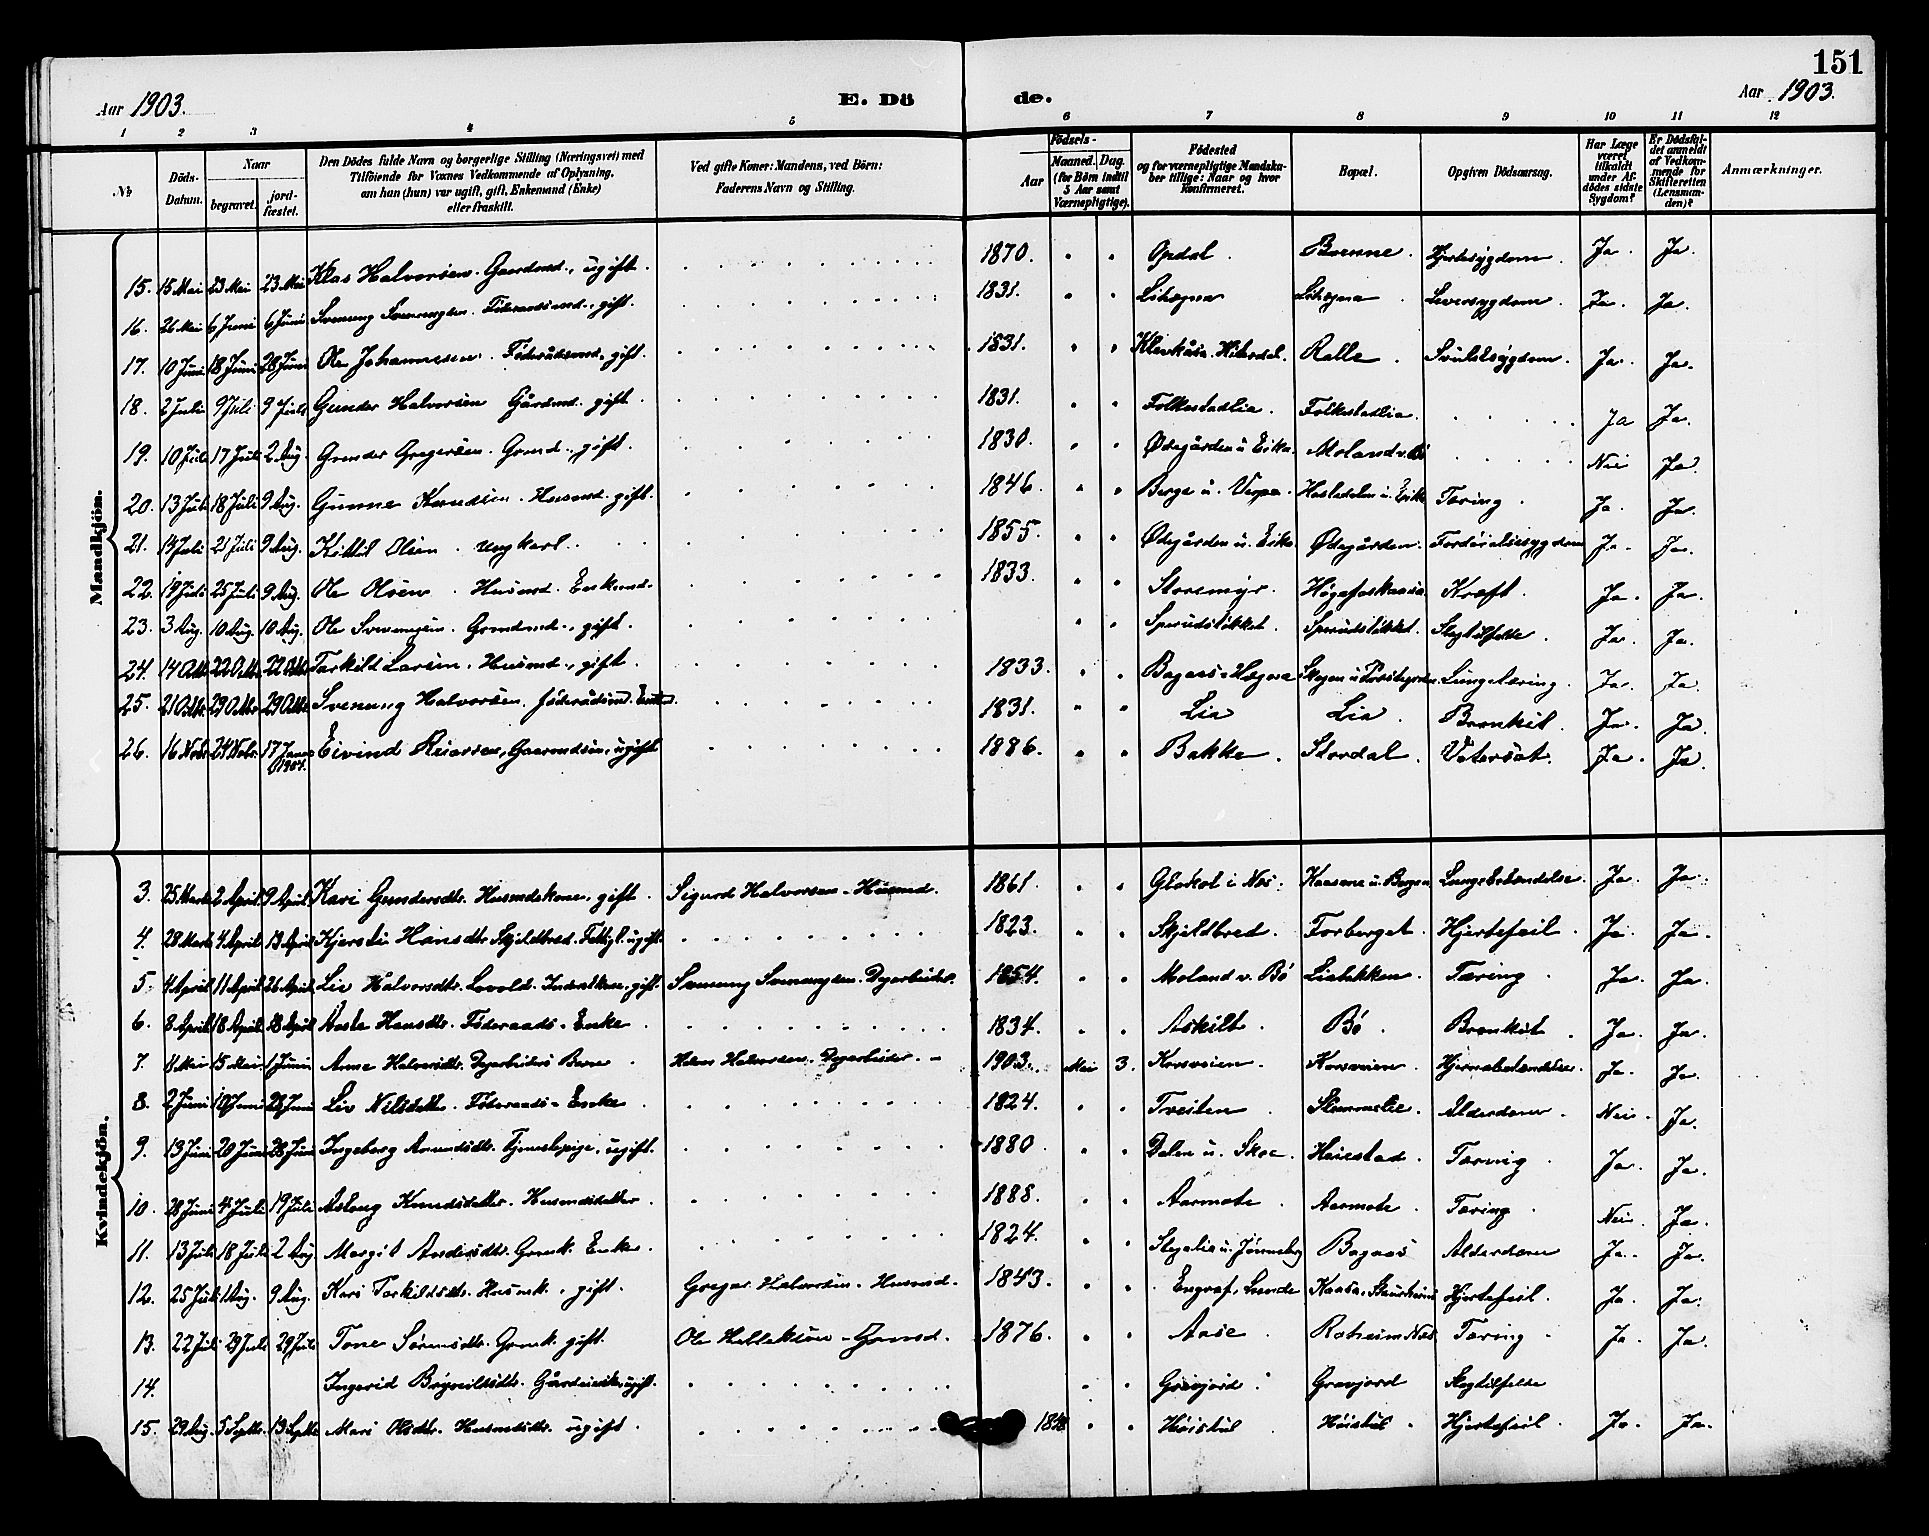 151
Aar 1903. E. Dö de. Aar 1903.
1 2 3 4 5 6 7 8 9 10 11 12
№ Döds-Datum. Naar begravet. jordfæstet. Den Dödes fulde Navn og borgerlige Stilling (Næringsvei) med Tilföiende for Voxnes Vedkommende af Oplysning, om han (hun) var ugift, gift, Enkemand (Enke) eller fraskilt. Ved gifte Koner: Mandens, ved Börn: Faderens Navn og Stilling. Födsels- Aar Maaned. Dag. (for Børn indtil 5 Aar samt Værnepligtige). Födested og for værnepligtige Mandskaber tillige: Naar og hvor Konfirmeret. Bopæl. Opgiven Dödsaarsag. Har Læge været tilkaldt under Afdødes sidste Sygdom? Er Dödsfaldet anmeldt af Vedkommende for Skifteretten (Lensmanden)? Anmærkninger.
Mandkjön.
15. 15 Mai 23 Mai 23 Mai Klas Halvorsen. Gaardmd., ugift. 1870. Opdal. Brenne. Hjertesygdom. Ja. Ja.
16. 26 Mai 6 Juni 6 Juni Svenung Svenungsen. Föderaadsmd., gift. 1831. Lihægna Lihægna Leversygdom. Ja. Ja.
17. 10 Juni 18 Juni 28 Juni Ole Johannesen. Föderådsmd., gift. 1831. Hiterdal. Ralle. Svulstsygdom. Ja. Ja.
18. 2 Juli 9 Juli 9 Juli Gunder Halvorsen Gårdmd. gift. 1831. Folkestadlia. Folkestadlia. Ja Ja.
19. 10 Juli 17 Juli 2 Aug. Gunder Gregersen. Grmd., gift. 1830. Ødegården u. Eika. Moland v. Bö Nei Ja.
20. 13 Juli 18 Juli 9 Aug. Gunne Knudsen. Husmd. gift. 1846. Berge u. Verpe. Hasledalen u. Eika Tæring. Ja. Ja.
21. 14 Juli 21 Juli 9 Aug. Kittil Olsen. Ungkarl. 1855. Ødegården u. Eika. Ødegården. Fordöielsessygdom Ja. Ja.
22. 19 Juli 25 Juli 9 Aug. Ole Olsen. Husmd. Enkemd. 1833. Storemyr. Høgefoskaasa Kræft. Ja. Ja.
23. 3 Aug. 10 Aug. 10 Aug. Ole Svenungsen. Grmdmd., gift. Sperudstökket. Sperudstökket. Slagtilfelde. Ja. Ja.
24. 14 Oktbr 22 Oktbr 22 Oktbr Tarkild Larsen. Husmd., gift. 1833. Bagaas i Hægna Skogen u. Prestegaarden. Lungetæring. Ja. Ja.
25. 21 Oktbr 29 Oktbr 29 Oktbr Svenung Halvorsen. föderådsmd. Enkem. 1831. Lia Lia. Bronkit. Ja. Ja.
26. 16 Novbr 24 Novbr. 17 Januar 1904. Eivind Gaardmdsön, ugift 1886. Bakke. Stordal. Vatersot. Ja. Ja.
Kvindekjön.
3. 25 Marts 2 April 9 April Kari Gundersdtr. Husmdskone, gift. Sigurd Halvorsen. Husmd. 1861. i Næs. Kaasene u. Bergen Lungebetændelse. Ja. Ja.
4. 28 Marts 4 April 13 April Kjersti Hansdtr. Skjeldbred. Fattigl. ugift. 1823. Skjeldbred. Forberget. Hjertefeil. Ja. Ja.
5. 4 April 11 April 26 April Liv Halvorsdtr. Lovold. gift. Svenung Svenungsen. Dagarbeider. 1854. Moland v. Bö Liabekken. Tæring. Ja. Ja.
6. 8 April 18 April 18 April Aaste Hansdtr. Föderaads-Enke. 1834. Askilt. Bö. Bronkit. Ja. Ja.
7. 8 Mai 15 Mai 1 Juni Anne Halvorsdtr. Dagarbeiders Barn. Hans Halvorsen. Dagarbeider. 1903. Mai 3. Korsveien. Korsveien. Hjernebetændelse. Ja. Ja.
8. 2 Juni 10 Juni 28 Juni Liv Nilsdatter. Föderaads-Enke. 1824. Treiten. Slimmelie. Alderdom. Nei. Ja.
9. 13 Juni 20 Juni 28 Juni Ingeborg Amundsdtr. Tjenestepige, ugift. 1880. Dalen u. Skoe. Haiestad. Tæring. Ja. Ja.
10. 28 Juni 4 Juli 19 Juli Aslaug Knudsdatter. Husmdsdatter. 1888. Aarmote. Aarmote. Tæring. Nei. Ja.
11. 13 Juli 18 Juli 2 Aug. Margit Andersdtr. Grmk. Enke. 1824. Bagaas Alderdom Ja. Ja.
12. 25 Juli 1 Aug. 9 Aug. Kari Tarkildsdtr. Husmk., gift. Gregar Halvorsen. Husmd. 1843. Engraf, Lunde Kaasa, Hjertefeil. Ja. Ja.
13. 22 Juli 29 Juli 29 Juli Tone Sörensdtr. Grmk. gift. Ole Helleksen. Grmd. 1876. Aase. Roheim Næs. Tæring. Ja. Ja.
14. Ingerid Brynildsdtr. ugift. Gravjord. Gravjord Slagtilfelde
15. 29 Aug. 5 Septbr. 13 Septbr. Mari Olsdtr. Husmdsdtr. ugift. Høistul Høistul. Hjertefeil. Ja. Ja.